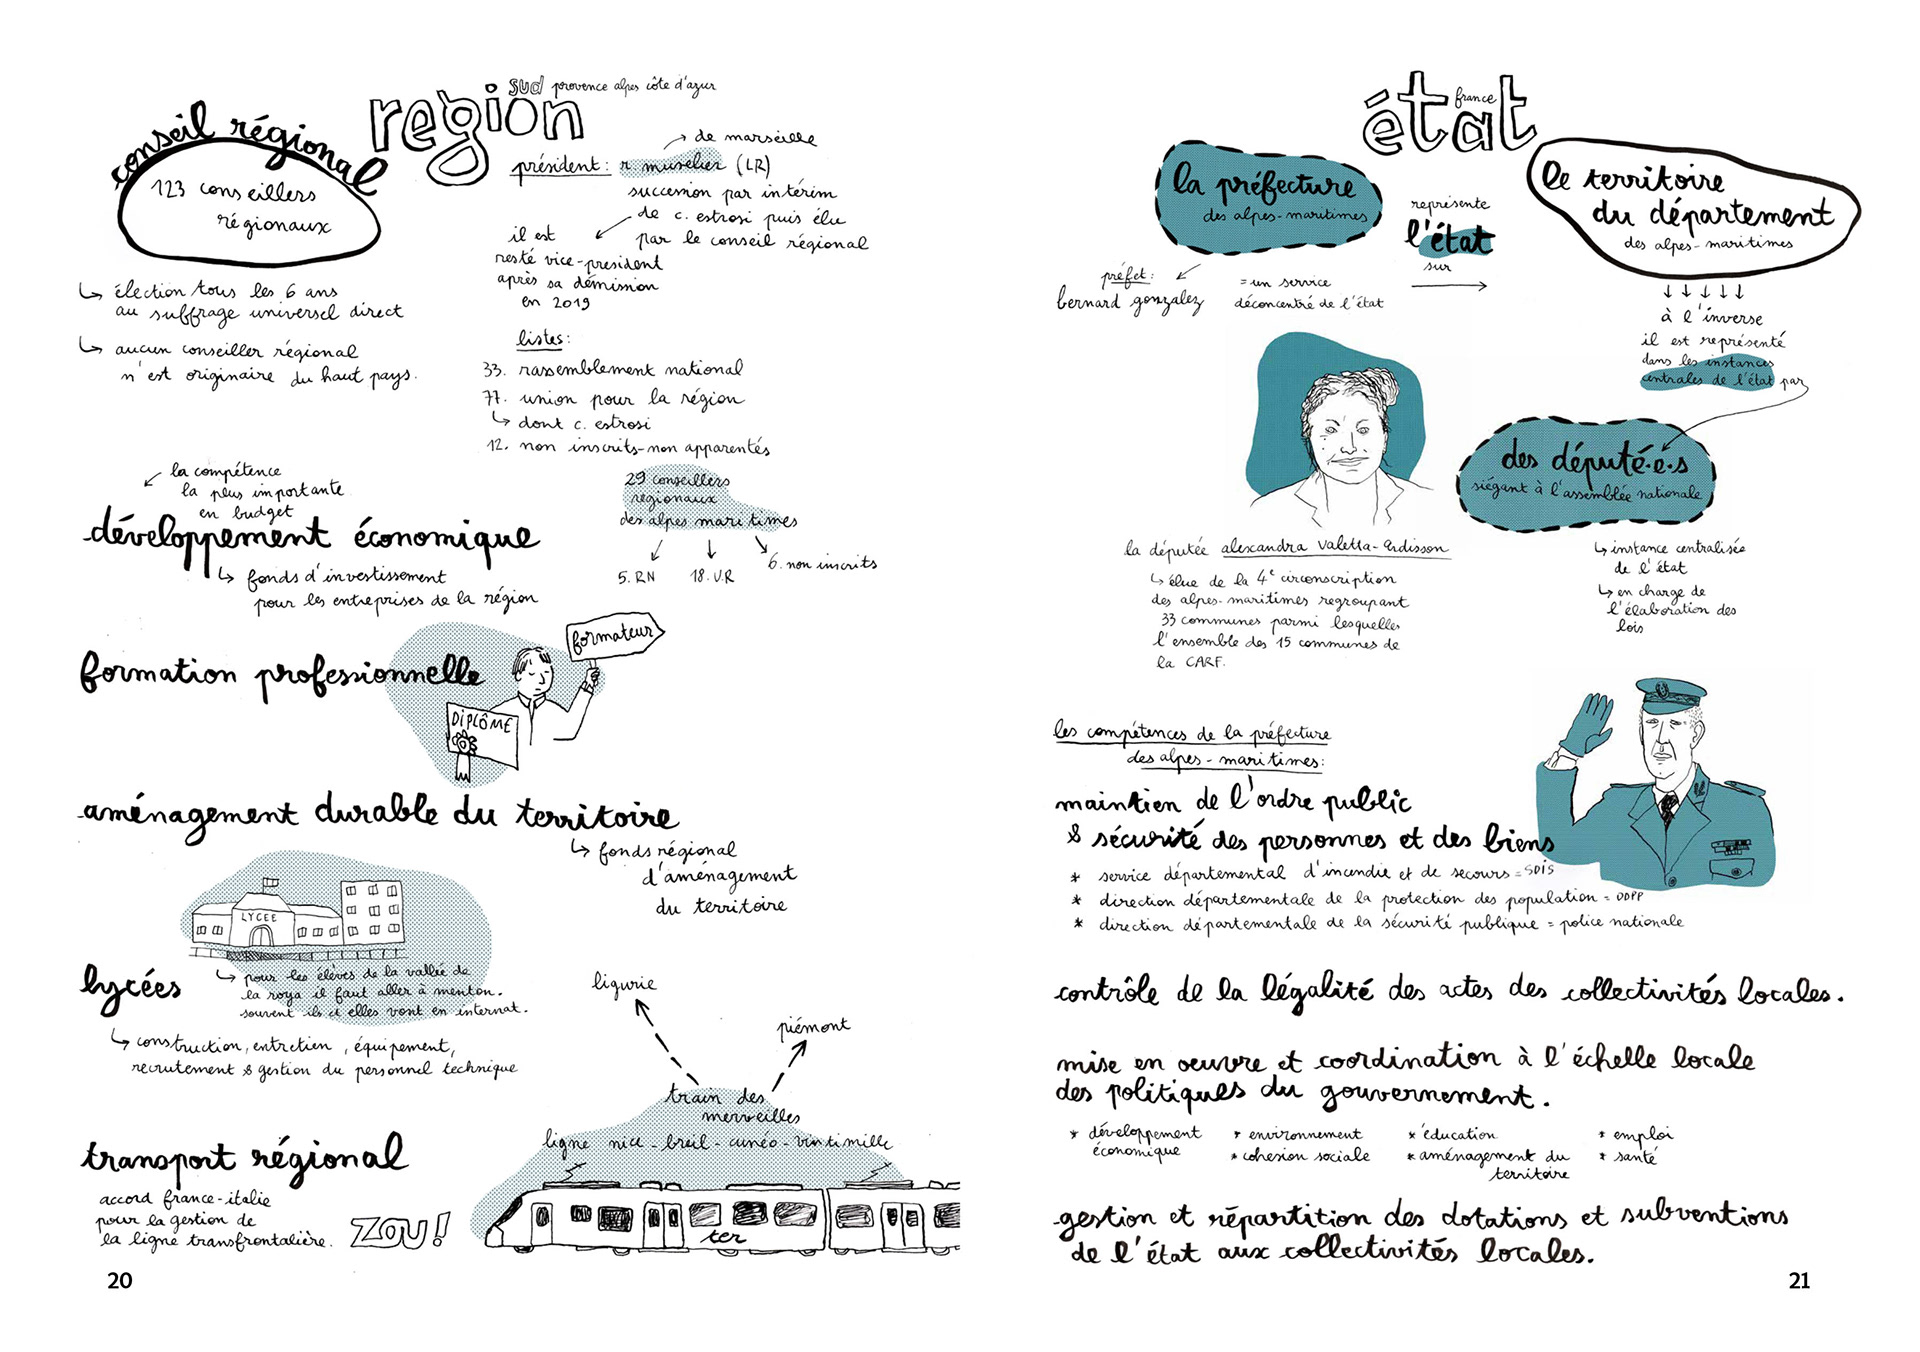 sud provence alpes côte d'azur
region
conseil régional
123 conseillers
régionaux
↳ élection tous les 6 ans
au suffrage universel direct
↳ aucun conseiller régional
n'est originaire du haut pays.
→ de marseille
président : r muselier (LR)
succession par intérim
de c. estrosi puis élu
par le conseil régional
il est
resté vice-president
après sa démission
en 2019
listes :
33. rassemblement national
77. union pour la région
↳ dont c. estrosi
12. non inscrits-non apparentés
29 conseillers
régionaux
des alpes maritimes
5. RN
18. U.R
6. non inscrits
la compétence
la plus importante
en budget
développement économique
↳ fonds d'investissement
pour les entreprises de la région
formation professionnelle
formateur
DIPLÔME
aménagement durable du territoire
↳ fonds régional
d'aménagement
du territoire
LYCEE
lycées
↳ pour les élèves de la vallée de
la roya il faut aller à menton.
souvent ils et elles vont en internat.
↳ construction, entretien, équipement,
recrutement & gestion du personnel technique
ligurie
piémont
train des
merveilles
ligne nice - breil - cunéo - vintimille
transport régional
accord france-italie
pour la gestion de
la ligne transfrontalière.
ZOU!
ter
20
état
france
la préfecture
des alpes-maritimes
représente
l'état
sur
le territoire
du département
des alpes-maritimes
préfet :
bernard gonzalez
= un service
déconcentré de l'état
à l'inverse
il est représenté
dans les instances
centrales de l'état par
des député·e·s
siégant à l'assemblée nationale
↳ instance centralisée
de l'état
↳ en charge de
l'élaboration des
lois
la députée alexandra Valetta-Ardisson
↳ élue de la 4e circonscription
des alpes-maritimes regroupant
33 communes parmi lesquelles
l'ensemble des 15 communes de
la CARF.
les compétences de la préfecture
des alpes-maritimes :
maintien de l'ordre public
& sécurité des personnes et des biens
* service départemental d'incendie et de secours = SDIS
* direction départementale de la protection des population = DDPP
* direction départementale de la sécurité publique = police nationale
contrôle de la légalité des actes des collectivités locales.
mise en oeuvre et coordination à l'échelle locale
des politiques du gouvernement.
* développement
économique
* environnement
* cohesion sociale
* éducation
* aménagement du
territoire
* emploi
* santé
gestion et répartition des dotations et subventions
de l'état aux collectivités locales.
21